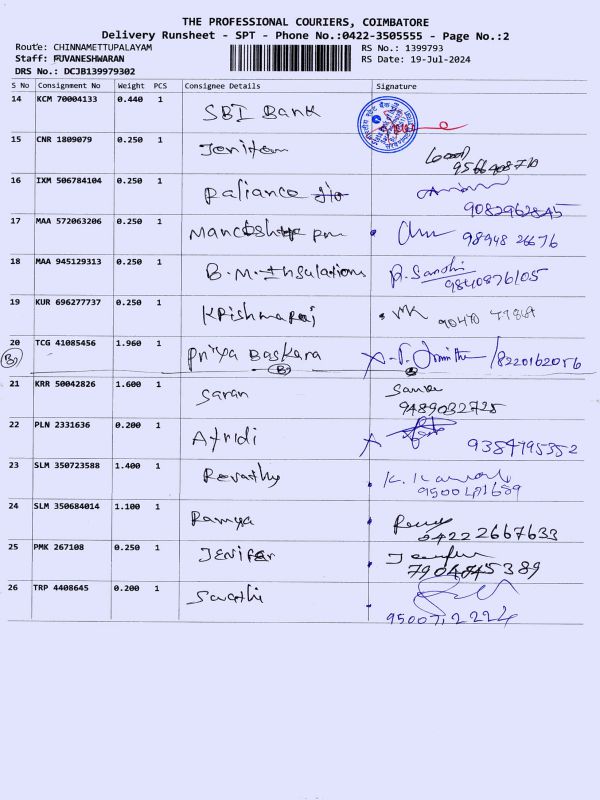 THE PROFESSIONAL COURIERS, COIMBATORE
Delivery Runsheet - SPT - Phone No.:0422-3505555 - Page No.:2
Route: CHINNAMETTUPALAYAM RS No.: 1399793
Staff: FUVANESHWARAN RS Date: 19-Jul-2024
DRS No.: DCJB139979302
S No Consignment No Weight PCS Consignee Details Signature
14 KCM 70004133 0.440 1 SBI Bank
15 CNR 1809079 0.250 1
16 IXM 506784104 0.250 1 Raliance Jio
9082962845
17 MAA 572063206 0.250 1
98948 26676
18 MAA 945129313 0.250 1 B.M.Insulations
9840876105
19 KUR 696277737 0.250 1 Krishnaraj
20 TCG 41085456 1.960 1 Priya Baskara
8220162056
21 KRR 50042826 1.600 1 Saran
9489032725
22 PLN 2331636 0.200 1 Afridi
9384795352
23 SLM 350723588 1.400 1 Revathy
24 SLM 350684014 1.100 1 Ramya
04222667633
25 PMK 267108 0.250 1 Jenifer
7904845389
26 TRP 4408645 0.200 1